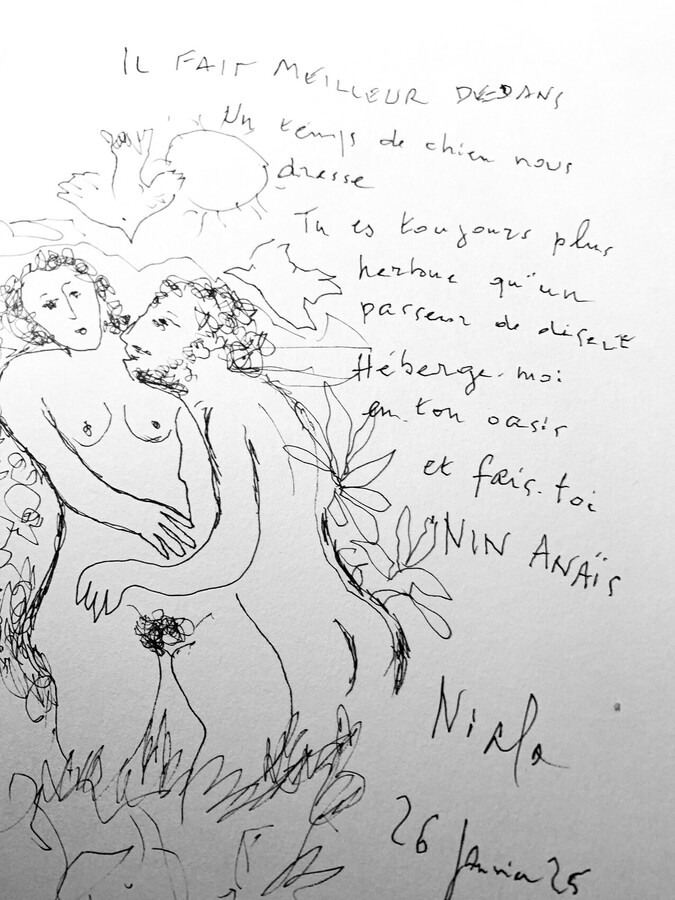 IL FAIT MEILLEUR DEDANS
Un temps de chien nous
dresse
Tu es toujours plus
herboue qu'un
passeur de désert
Héberge-moi
en ton oasis
et fais-toi
NIN ANAÏS
Niala
26 Janvier 25